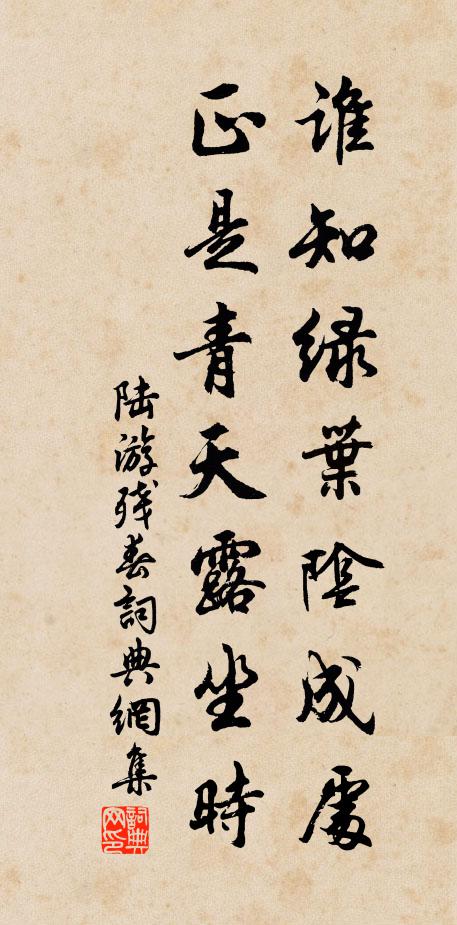 誰知綠葉陰成處
正是青天露坐時
陸游殘春詞典網集
詞典網印